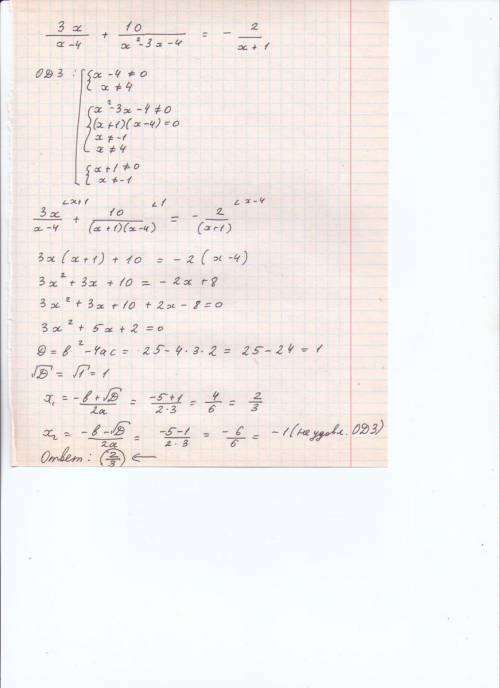 3x/(x-4) + 10/(x²-3x-4) = -2/(x+1)
ОДЗ: x-4≠0
x≠4
x²-3x-4≠0
(x+1)(x-4)=0
x≠-1
x≠4
x+1≠0
x≠-1
3x/(x-4) ∠x+1 + 10/((x+1)(x-4)) ∠1 = -2/(x+1) ∠x-4
3x(x+1)+10 = -2(x-4)
3x²+3x+10 = -2x+8
3x²+3x+10+2x-8=0
3x²+5x+2=0
D=b²-4ac= 25-4·3·2= 25-24=1
√D= √1=1
x₁=(-b+√D)/2a = (-5+1)/(2·3) = 4/6 = 2/3
x₂=(-b-√D)/2a = (-5-1)/(2·3) = -6/6 = -1 (не удовл. ОДЗ)
Ответ: (2/3) ←